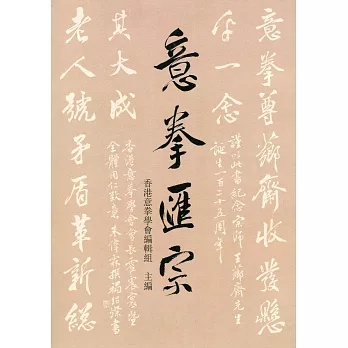 意拳尊薌齋收發懸
于一念
謹以此書紀念宗師王薌齋先生
誕生一百二十五周年
意拳匯宗
香港意拳學會編輯組 主編
其大成
老人號矛盾革新總
香港意拳學會會長霍震寰暨
全體同仁致意